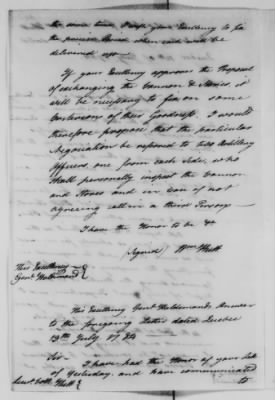 the same time I wish your Excellency to fix
the precise Period when each will be
delivered upon.
If your Excellency approves the Proposal
of exchanging the Cannon & Stores, it
will be necessary to fix on some
Criterions of their Goodness. I would
therefore propose that the particular
Negociation be referred to two Artillery
Officers one from each Side, who
shall personally inspect the Cannon
and Stores and in case of not
agreeing call in a third Person.
I have the Honor to be &c
(Signed) Wm Hull
His Excellency
Genl Haldimand
His Excellency Genl Haldimand's Answer
to the foregoing Letter dated Quebec
13th July 1784
Sir I have had the Honor of your
of Yesterday and have communicated
Lieut Coll Hull to